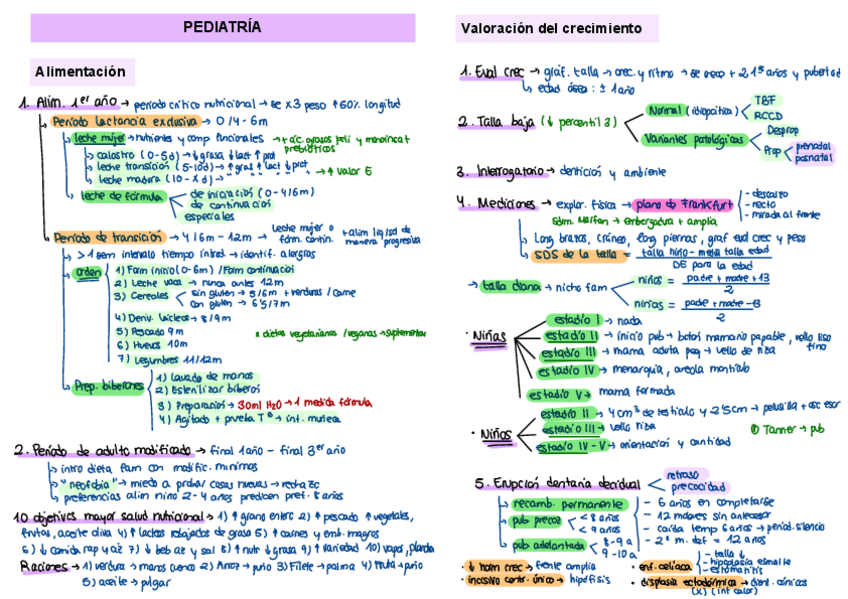 PEDIATRÍA
Alimentación
1. Alim. 1er año → período crítico nutricional → se x3 peso ↑60% longitud
Período lactancia exclusiva → 0/4-6m
leche mujer → nutrientes y comp funcionales → + ác. grasos
prebióticos
calostro (0-5d) → ↓grasa ↓lact ↑prot
leche transición (5-10d) → ↑gras ↑lact ↓prot
leche madura (10-xd) → → ↑ valor E
leche de fórmula
de iniciación (0-4/6m)
de continuación
especiales
Período de transición → 4/6m-12m → leche mujer o fórm. contin. + alim líq/sól de manera progresiva
> 1 sem intervalo tiempo introd → identif. alergias
orden
1) Farm inicio (0-6m) / Farm continuación
2) Leche vaca → nunca antes 12m
3) Cereales
sin gluten → 5/6m + verduras / carne
con gluten → 6'5/7m
4) Deriv. lácteos → 8/9m
5) Pescado 9m
6) Huevos 10m
7) Legumbres 11/12m
* dietas vegetarianas / veganas → suplementar
Prep. biberones
1) Lavado de manos
2) Esterilizar biberos
3) Preparación → 30ml H2O → 1 medida fórmula
4) Agitado + prueba Tª → int. muñeca
2. Período de adulto modificado → final 1año - final 3er año
intro dieta fam con modific. mínimas
"neofobia" → miedo a probar cosas nuevas → rechazo
preferencias alim niño 2-4 años predicen pref. 8 años
10 objetivos mayor salud nutricional → 1) ↑grano entero 2) ↑pescado ↑vegetales,
frutas, aceite oliva 4) ↑lácteos rebajados de grasa 5) ↑carnes y emb. magros
6) ↓comida rap y az 7) ↓beb az y sal 8) ↑nutr ↓grasa 9) ↑variedad 10) vapor, plancha
Raciones → 1) verdura → manos cuenco 2) Arroz → puño 3) Filete → palma 4) Fruta → puño
5) aceite → pulgar
Valoración del crecimiento
1. Eval crec → gráf. talla → crec. y ritmo → se + 2 1os años y pubertad
edad ósea: ± 1año
2. Talla baja (↓ percentil 3)
Normal (idiopática)
TBF
RCCD
Variantes patológicas
Desprop
Prop
prenatal
postnatal
3. Interrogatorio → dentición y ambiente
4. Mediciones → explor. física → plano de Frankfurt
- descalzo
- recto
- mirada al frente
Sdm. Marfan → embergadura + amplia
Long brazos, cráneo, long piernas, graf eval crec y peso
SDS de la talla = talla niño - media talla edad
DE para la edad
→ talla diana → nicho fam
niños = padre + madre + 13
2
niñas = padre + madre - 13
2
· Niñas
estadío I → nada
estadío II → inicio pub → botón mamario palpable, vello liso
fino
estadío III → mama adulta peq → vello de riza
estadío IV → menarquia, areola montículo
estadío V → mama formada
· Niños
estadío II → 4cm3 de testículo y 2'5cm → pelusilla + osc escr
estadío III → vello riza
estadío IV-V → orientación y cantidad
Tanner → pub
5. Erupción dentaria decidual
retraso
precocidad
recamb. permanente
pub precoz
< 8 años
< 9 años
pub adelantada
8-9 a
9-10 a
- 6 años en completarse
- 12 molares sin antecesor
- caída temp 6 años → period. silencio
- 2º m. def = 12 años
· ↓ horm crec → frente amplia
· incisivo centr. único → hipófisis
· enf. celíaca
- talla ↓
- hipoplasia esmalte
- estomatitis
· displasia ectodérmica → dient. cónicos
(x) (int calor)